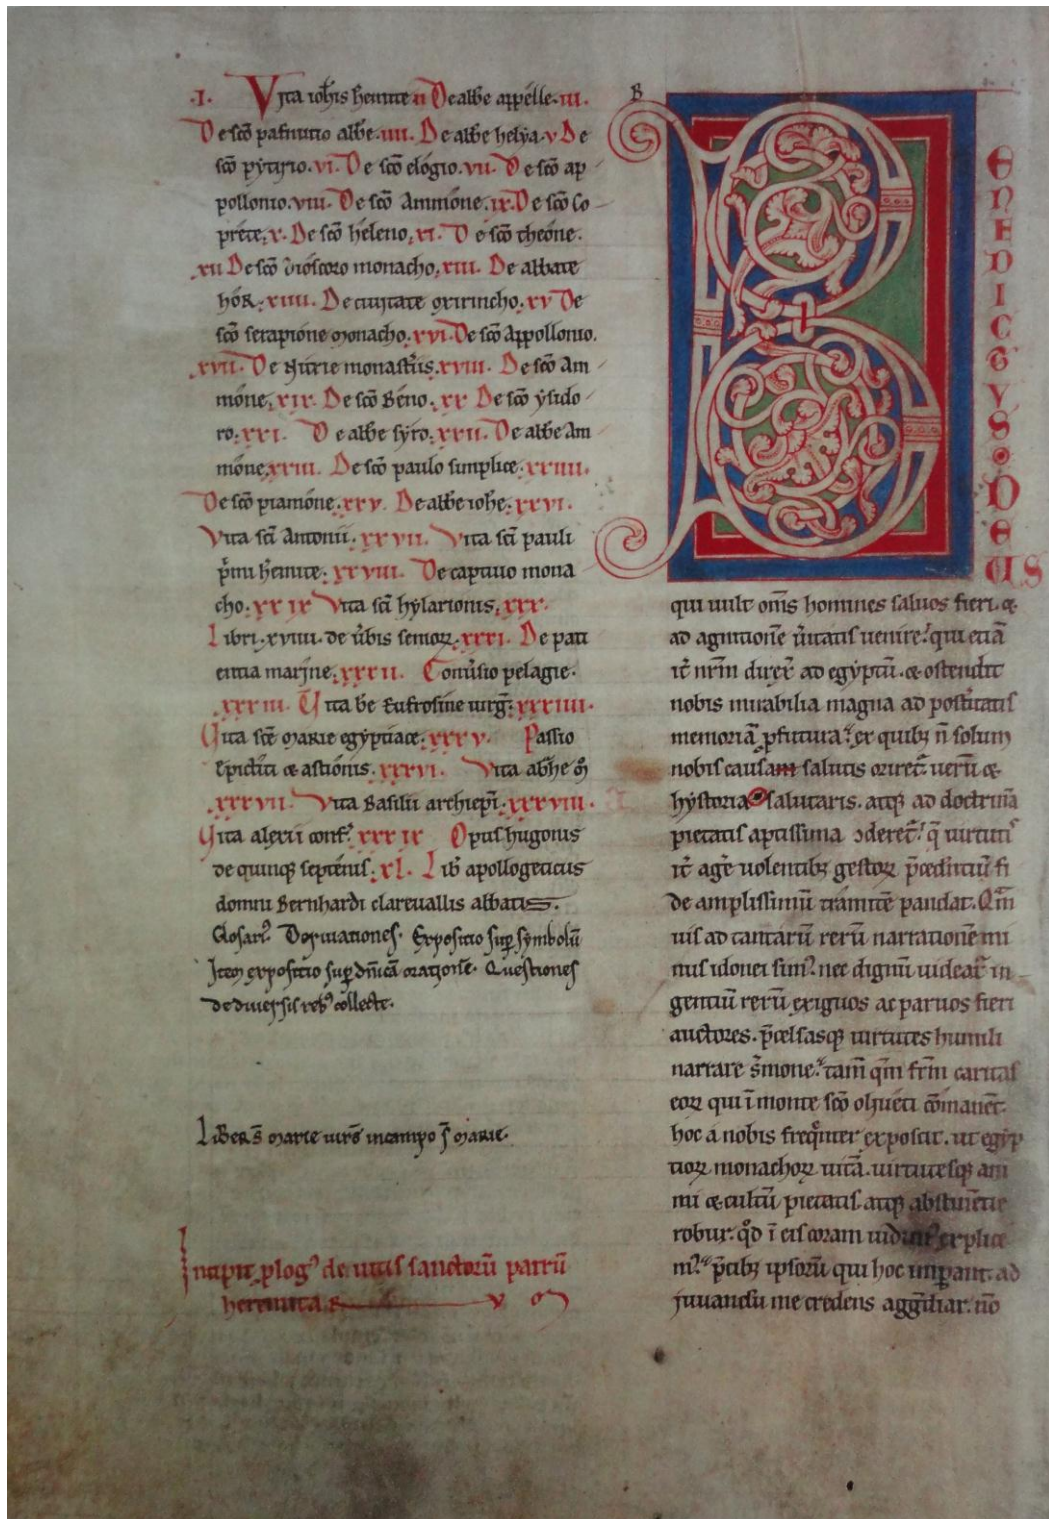 .I. Vita ioh̅is h̅emite II De abb̅e appélle. III.
De sc̅o pafnutio abb̅e. IIII. De abb̅e helýa. V De
sc̅o pytýrio. VI. De sc̅o elógio. VII. De sc̅o ap
pollonio. VIII. De sc̅o Ammóne. IX. De sc̅o Co
préte. X. De sc̅o héleno. XI. De sc̅o theóne.
XII De sc̅o dióscoro monacho. XIII. De abbate
hór. XIIII. De ciuitate oxirincho. XV De
sc̅o serapióne monacho. XVI. De sc̅o Appollonio.
XVII. De Nitrie monast̅iis. XVIII. De sc̅o Am
móne. XIX. De sc̅o Béno. XX De sc̅o ýsido
ro. XXI. De abb̅e sýro. XXII. De abb̅e Am
móne. XXIII. De sc̅o paulo simplice. XXIIII.
De sc̅o piamóne. XXV. De abb̅e ioh̅e. XXVI.
Vita sc̅i Antonii. XXVII. Vita sc̅i pauli
p̅mi h̅emite. XXVIII. De captiuo mona
cho. XXIX Vita sc̅i hylarionis. XXX.
Libri. XVIIII. de u̅bis senioꝝ. XXXI. De pati
entia marine. XXXII. Conu̅sio pelagie.
XXXIII. Vita be̅ Eufrosine uirg̅. XXXIIII.
Vita sc̅e Marie egyptiace. XXXV. Passio
Epicliti & astiónis. XXXVI. Vita abr̅he
XXXVII. Vita Basilii archiep̅i. XXXVIII.
Vita alexii conf. XXXIX Opus hugonis
de quinq; septénis. XL. Lib̅ apollogeticus
domni Bernhardi clareuallis abbatis.
Glosariꝰ. Deriuationes. Expositio sup̅ symbolū
Item expositio sup̅ dn̅icā orationē. Questiones
de diuersis rebꝰ collecte.
Liber s̅ Marie uirg̅ in campo s̅ Marie.
Incipit ꝓlogꝰ de uitis sanctorū patrū
heremita
B
BENEDICTVS. DEUS
qui uult om̅s homines saluos fieri. &
ad agnitionē u̅itatis uenire. qui etiā
it̅ nr̅m direx̅ ad egyptū. & ostendit
nobis mirabilia magna ad post̅itatis
memoriā ꝓfutura. ex quibꝫ n̅ solum
nobis causam salutis oriret̅ uerū &
hystoria salutaris. atq; ad doctrinā
pietatis aptissima ꝯderet̅. q̅ uirtutis
it̅ age̅ uolentibꝫ gestoꝝ p̅ceditiū fi
de amplissimū tramitē pandat. Qm̅
uis ad tantarū rerū narrationē mi
nus idonei simꝰ. nec dignū uideat̅ in
gentiū rerū exiguos ac paruos fieri
auctores. p̅celsasq; uirtutes humili
narrare s̅mone. tam̅ qm̅ fr̅m caritas
eoꝝ qui ī monte sc̅o oliueti cōmanet̅.
hoc a nobis freq̅nter exposcit. ut egyp
tioꝝ monachoꝝ uitā. uirtutesq; ani
mi & cultū pietatis. atq; abstinētie
robur. qd̅ ī eis coram uidimꝰ. explice
mꝰ. p̅cibꝫ ipsorū qui hoc imperant. ad
juuandū me credens aggrediar. nō